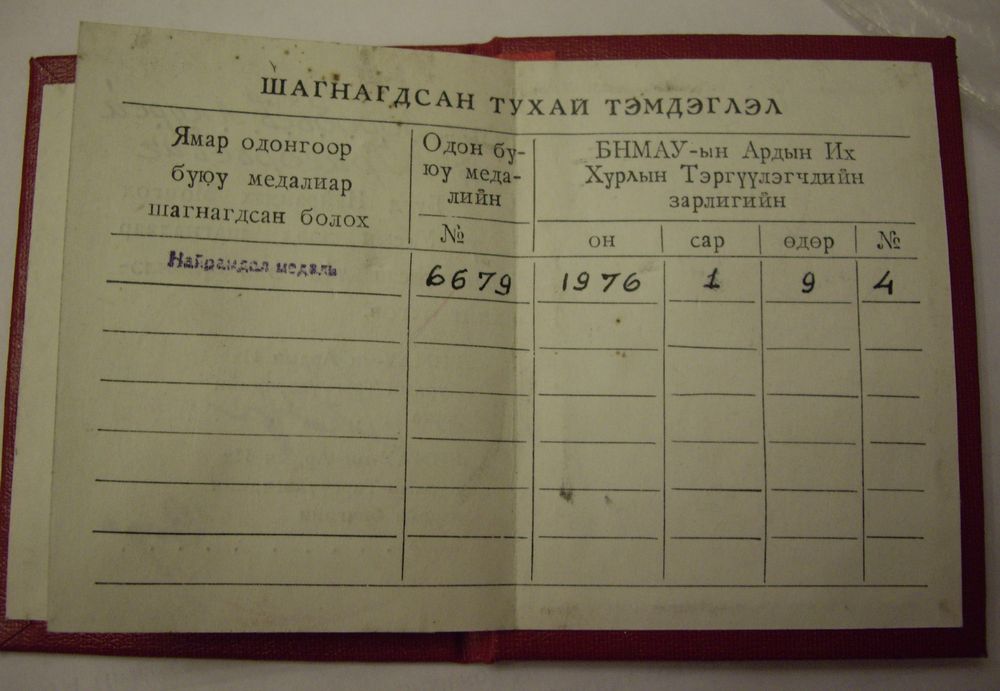 ШАГНАГДСАН ТУХАЙ ТЭМДЭГЛЭЛ
Ямар одонгоор
буюу медалиар
шагнагдсан болох
Одон бу-
юу меда-
лийн
№
БНМАУ-ын Ардын Их
Хурлын Тэргүүлэгчдийн
зарлигийн
он сар өдөр №
Найрамдал медаль 6679 1976 1 9 4